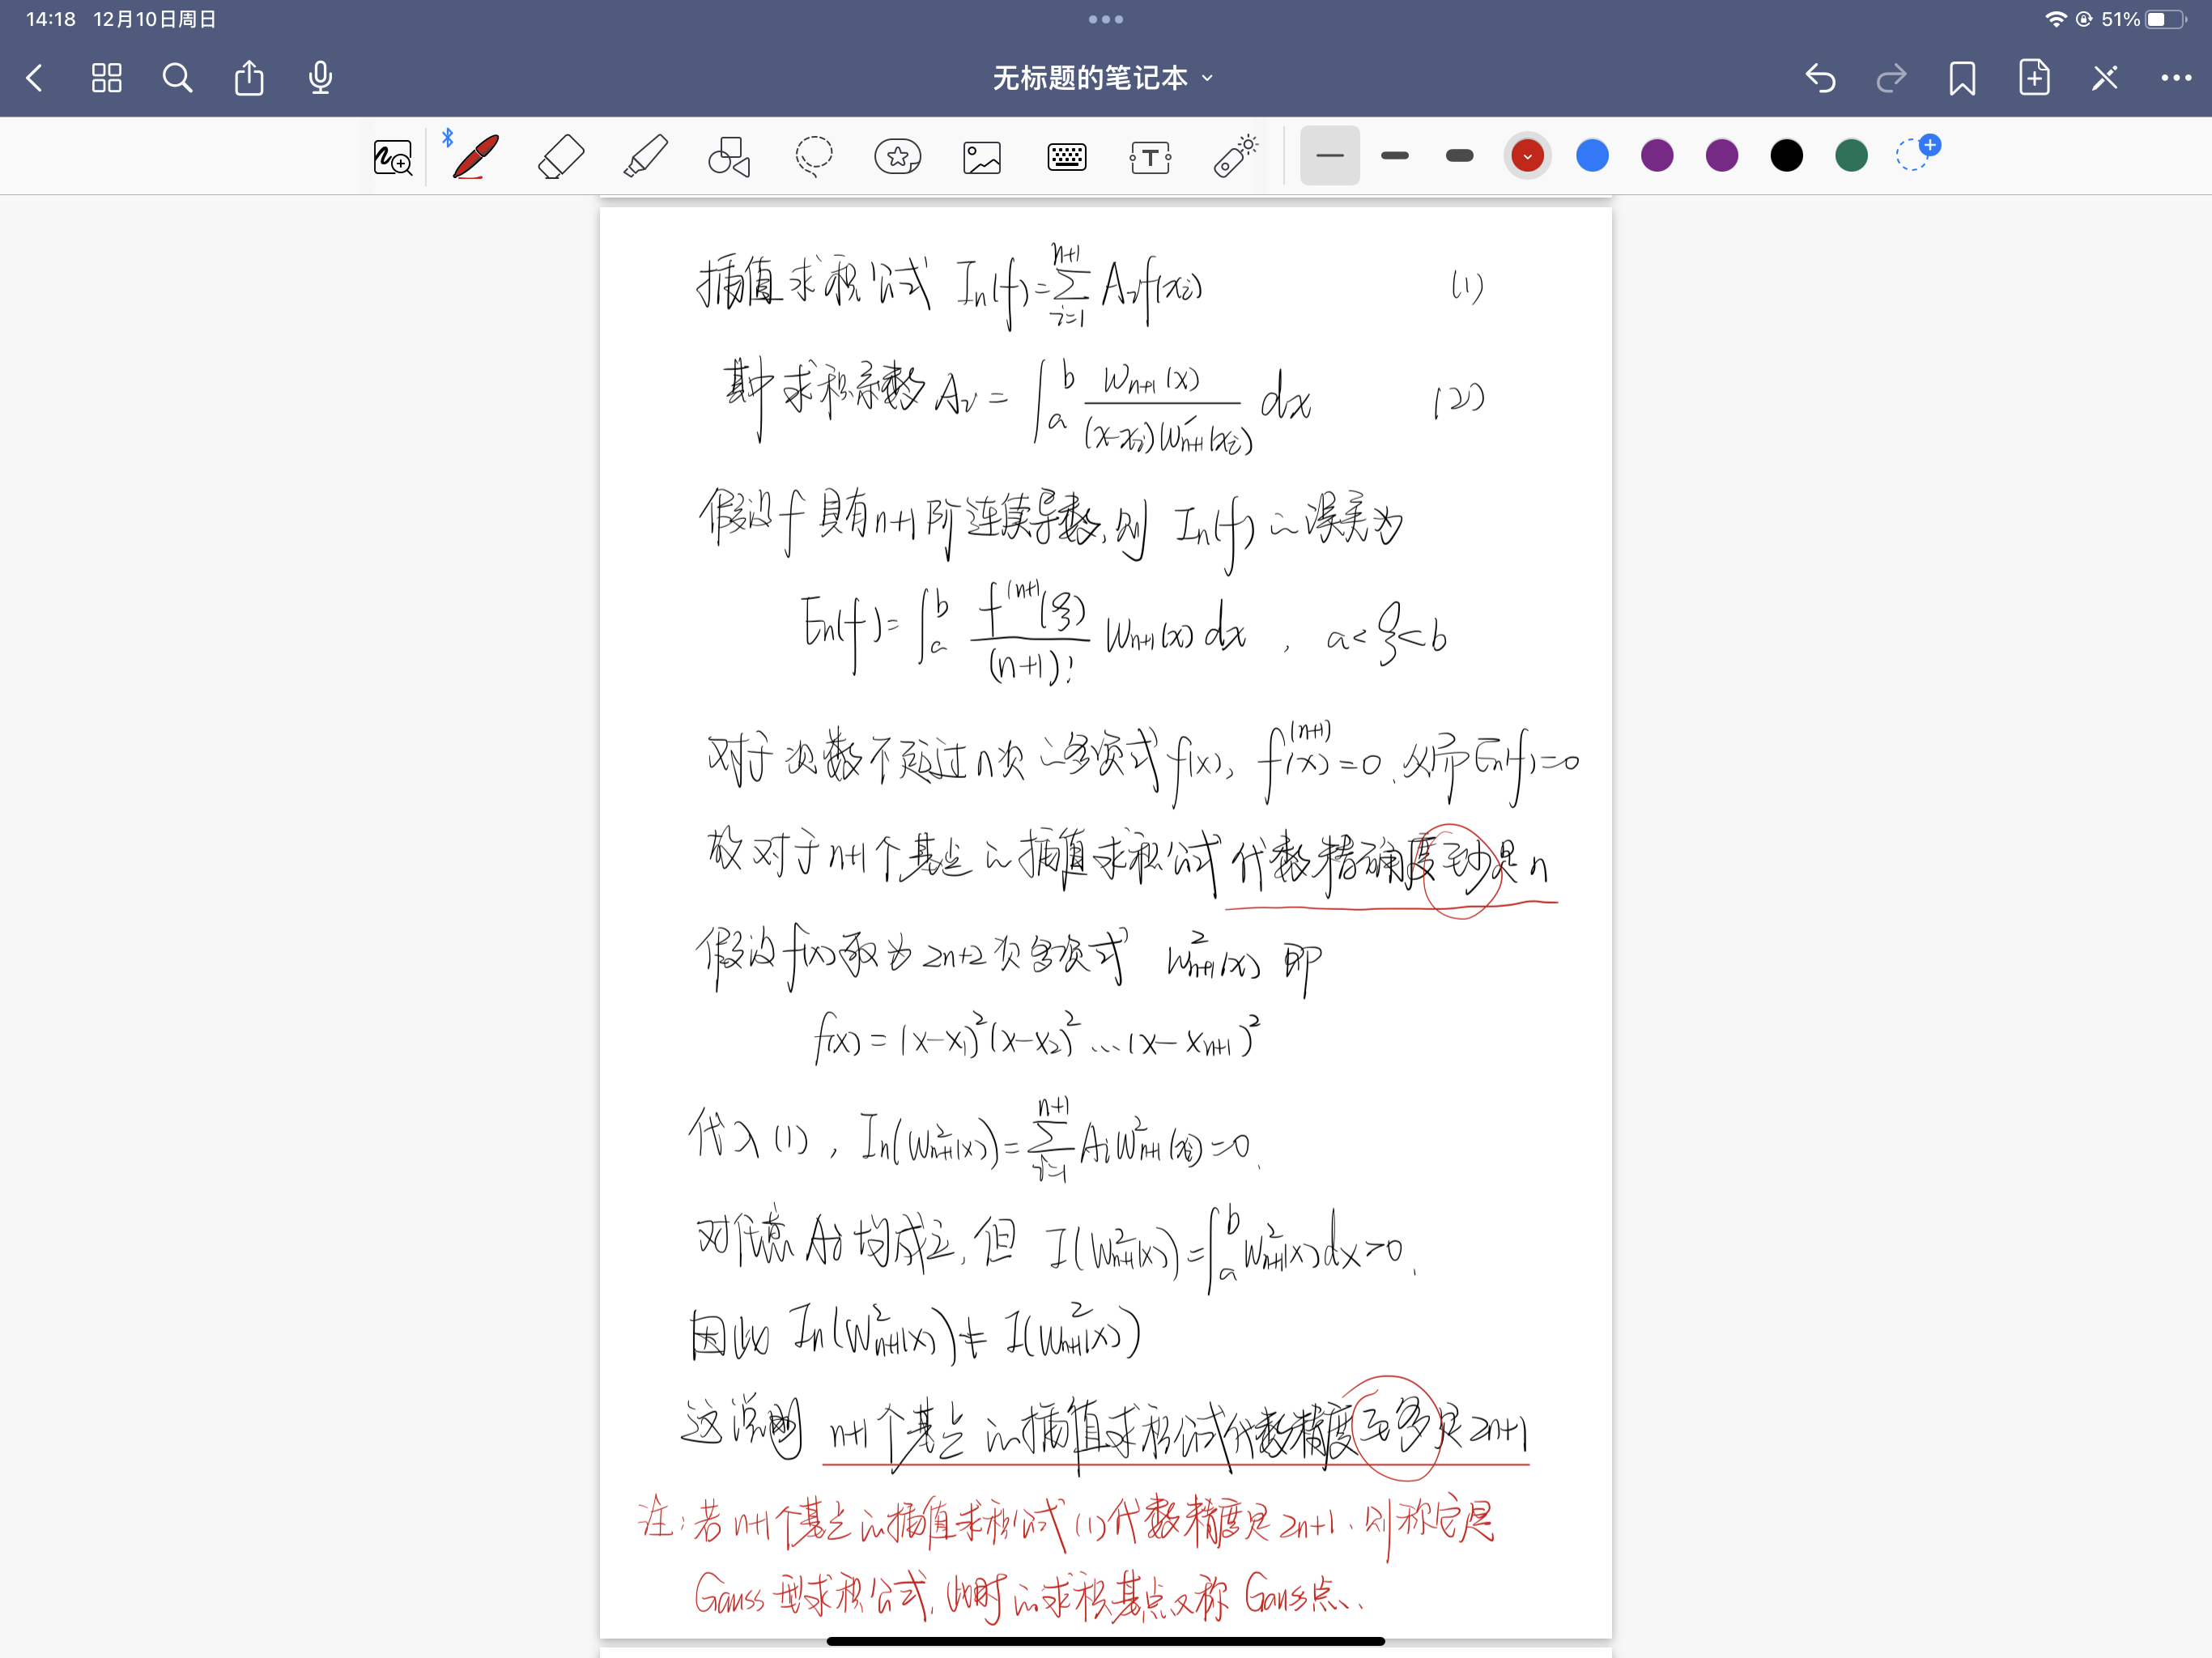 14:18 12月10日周日
51%
无标题的笔记本
插值求积公式 In(f)=∑_{i=1}^{n+1} Aᵢf(xᵢ) (1)
其中求积系数 Aᵢ = ∫_a^b W_{n+1}(x) / ((x-xᵢ)W'_{n+1}(xᵢ)) dx (2)
假设f具有n+1阶连续导数,则 In(f)的误差为
En(f)=∫_a^b f^{(n+1)}(ξ) / (n+1)! W_{n+1}(x) dx , a<ξ<b
对于次数不超过n次的多项式f(x), f^{(n+1)}(x)=0, 从而En(f)=0
故对于n+1个基点的插值求积公式代数精确度至少是n
假设f(x)取为2n+2次多项式 W²_{n+1}(x) 即
f(x) = (x-x₁)²(x-x₂)²...(x-x_{n+1})²
代入(1), In(W²_{n+1}(x))=∑_{i=1}^{n+1} AᵢW²_{n+1}(xᵢ)=0.
对任意Aᵢ均成立,但 I(W²_{n+1}(x))=∫_a^b W²_{n+1}(x)dx>0.
因此 In(W²_{n+1}(x))≠I(W²_{n+1}(x))
这说明 n+1个基点的插值求积公式代数精度至多是2n+1
注:若n+1个基点的插值求积公式(1)代数精度是2n+1,则称它是
Gauss型求积公式,此时的求积基点又称Gauss点.